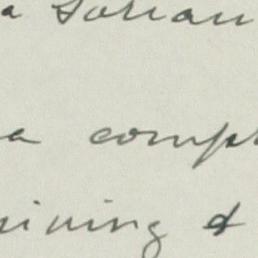 a Dorian
a comp
ining &